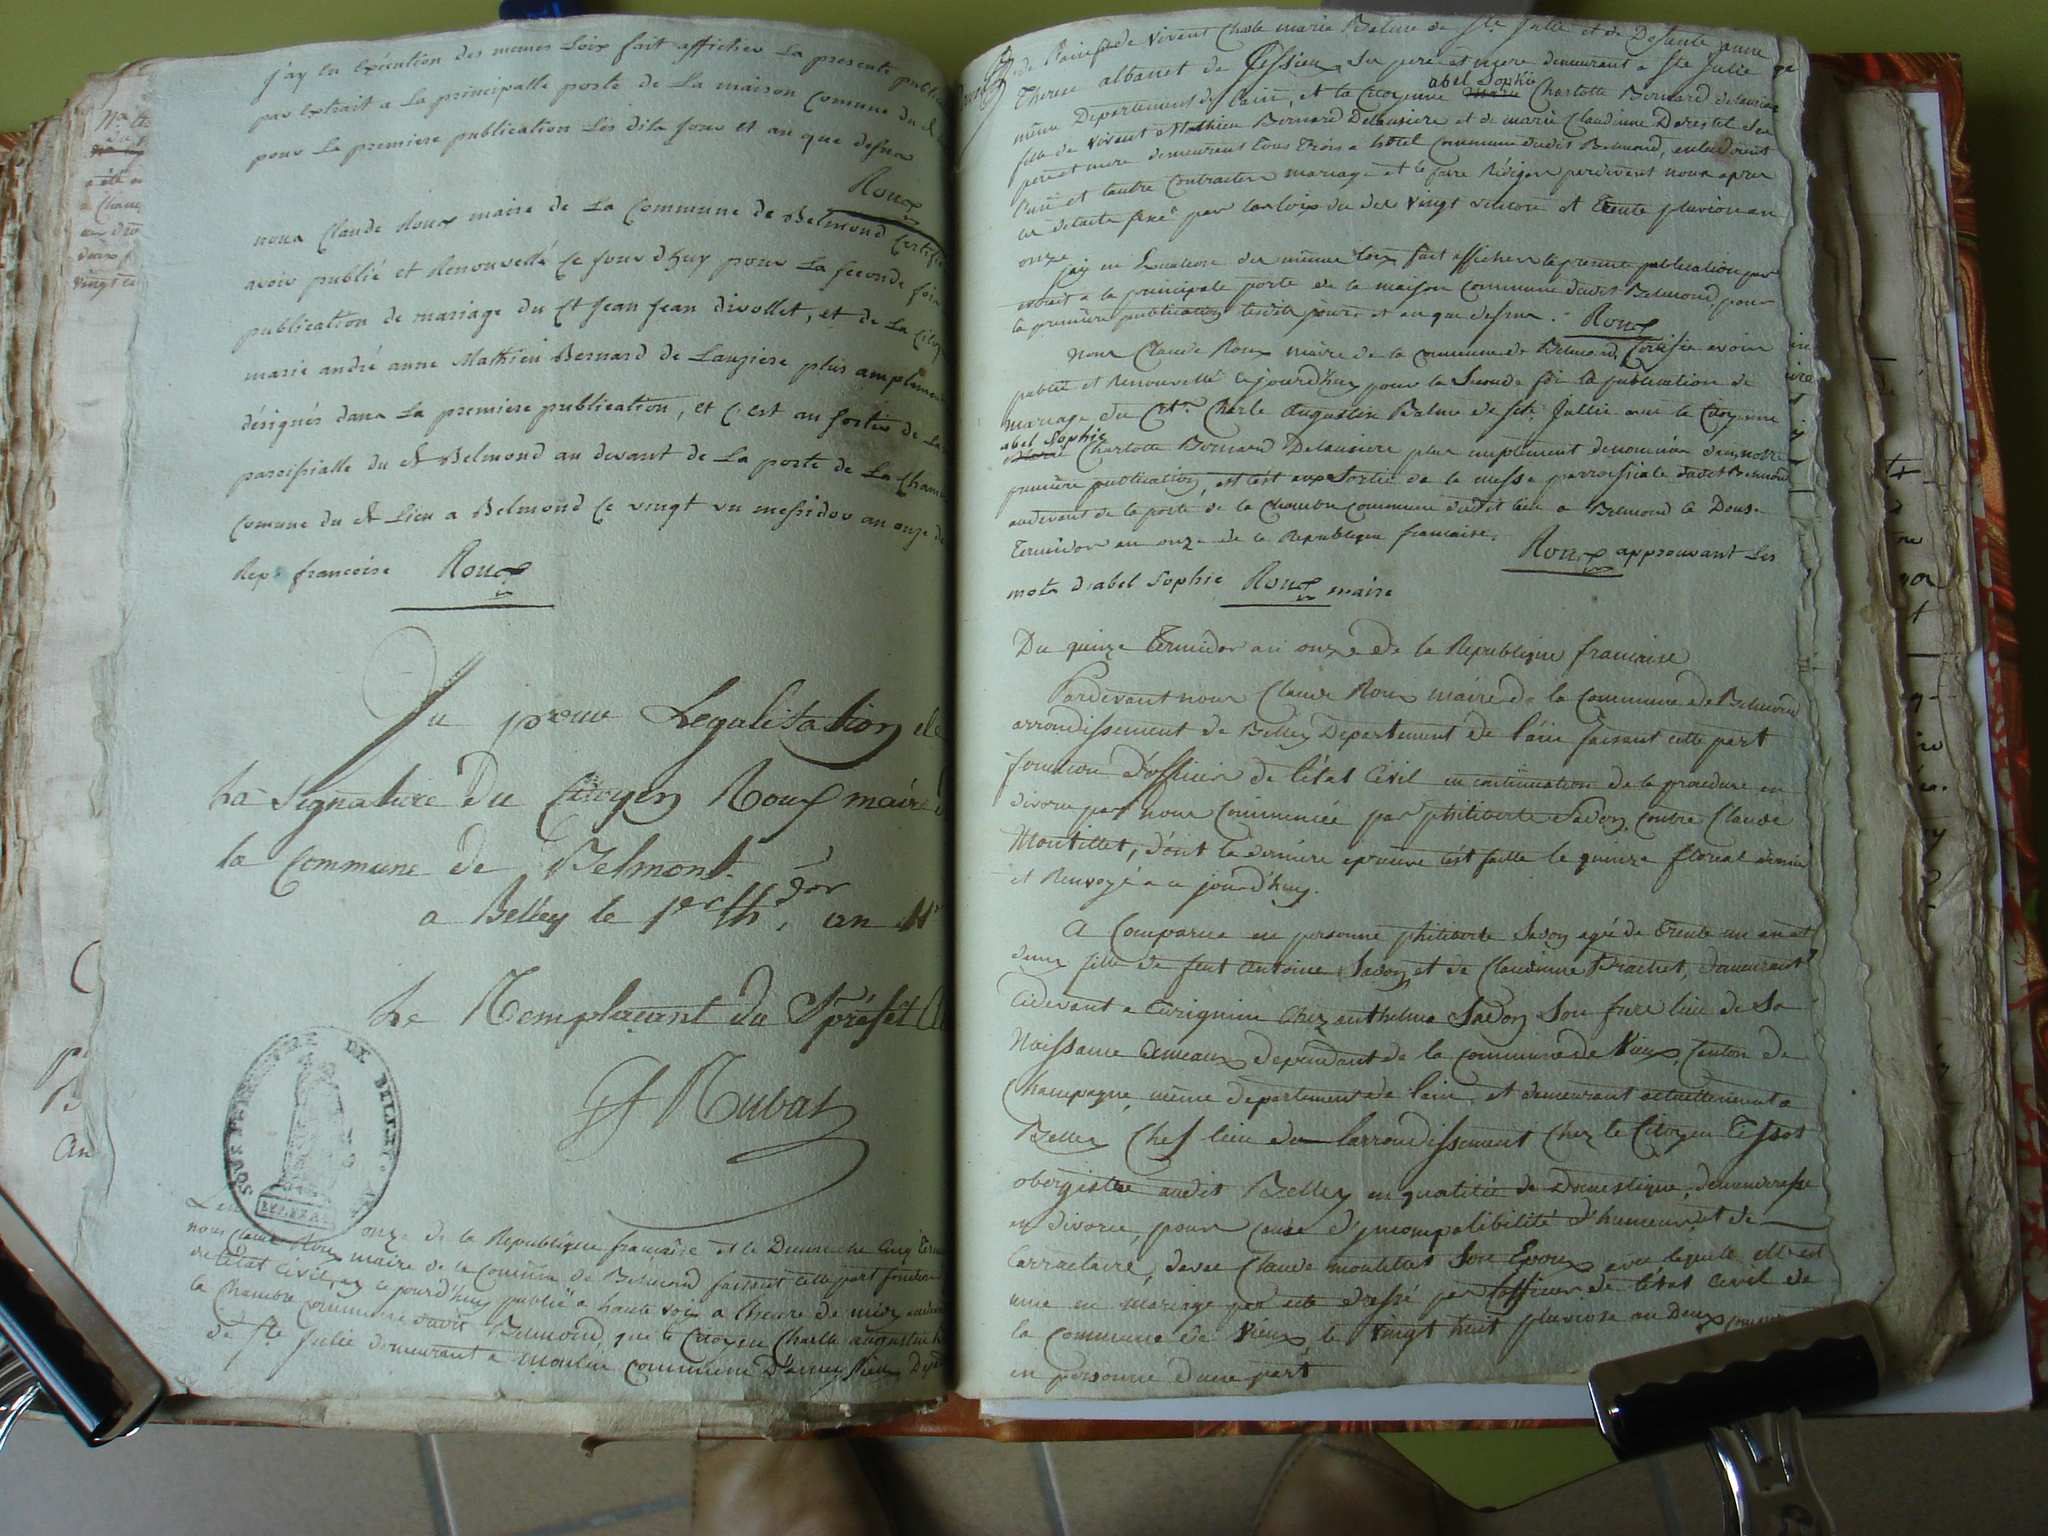 j'ay en exécution des memes Loix fait afficher La presente public
par extrait a La principalle porte de La maison Comune du
pour La premiere publication Les dits Jour et an que desus
Roux
nous Claude Roux maire de La Commune de Belmond Certifie
avoir publié et Renouvellé Ce Jour d'huy pour La seconde fois
publication de mariage du Ct Jean Jean divollet, et de La Citoy
marie andré anne Mathieu Bernard de Lauziere plus amplemen
désignés dans La premiere publication, et C'est au Sortir de La
paroissialle du dt Belmond au devant de La porte de La Cham
Comune du dt Lieu a Belmond Ce vingt un messidor an onze de
Rep. francoise Roux
Vu pour Legalisation de
La Signature du Citoyen Roux maire d
la Commune de Belmont.
a Belley le 1er thdor, an 11
Le Remplaçant du S préfet
Rubat
SOUS PREFECTURE DE BELLEY. AIN
onze de la Republique française et le Dimanche Cinq Term
nous Claude Roux maire de la Commune de Belmond faisant cette part fonction
de l'état Civil, ay ce jourd'huy publié a haute voix a l'heure de midy
la Chambre Commune dudit Belmond, que le Citoyen Charle augustin B
de Ste Julie demeurant a moulin Commune D'
de l'ain fils de vivent Charle marie Balme de Ste Julie et de Defunte anne
Therese albanet de Cessieu, Ses pere et mere demeurant a Ste Julie
même Departement de l'ain, et la Citoyenne abel Sophie Charlotte Bernard delausiere
fille de vivent Mathieu Bernard Delausiere et de marie Claudinne Derestel Ses
pere et mere demeurent tous trois a hôtel Commune dudit Belmond, entendoient
l'un et l'autre Contracter mariage et le faire Rédiger pardevent nous apres
ce delaite fixé par les loix du des vingt ventose et Trente pluviose an
onze
J'ay en Execution des mêmes loix fait afficher la presente publication par
extrait a la principale porte de la maison Commune dudit Belmond, pour
la premiere publication lesdits jours et an que desus. Roux
Nous Claude Roux maire de la Commune de Belmond Certifie avoir
publié et Renouvellé ce jourd'huy pour la Seconde fois la publication de
mariage du Ctn Charle Augustin Balme de Ste Jullie avec la Citoyenne
abel Sophie Charlotte Bernard Delausiere plus amplement denommée dans notre
première publication, et c'est aux Sortie de la messe parroissiale dudit Belmond
audevant de la porte de la Chambre Commune dudit lieu a Belmond le Douze
Termidor an onze de la Republique francaise. Roux approuvant Les
mots d'abel Sophie Roux maire
Du quinze Termidor an onze de la Republique francaise
Pardevant nous Claude Roux maire de la Commune de Belmond
arrondissement de Belley Departement de l'ain faisant cette part
fonction d'officier de l'état Civil en continuation de la procedure en
divorce par nous Commencée par philiberte Savoy contre Claude
Montillet, d'ont la derniere epreuve c'est faitte le quinze floreal dernier
et Renvoyé a ce jourd'huy.
A Comparue en personne philiberte Savoy agé de Trente un an et
demy fille de feut Antoine Savoy et de Claudinne Brachet, demeurant
Cidevant a Curignin Chez anthelme Savoy Son frere lieu de Sa
Naissance ameaux dependant de la commune de Vieux, Canton de
Champagne, même departement de l'ain, et demeurant actuellement a
Belley Chef lieu de l'arrondissement Chez le Citoyen Tissot
obergiste audit Belley en qualitée de Domestique, demanderesse
en divorce, pour cause d'jncompatibilité d'humeur et de
Carractaire, davec Claude montillet Son Epoux avec lequelle elle est
unie en mariage par acte dressé par l'officier de l'état Civil de
la Commune de Vieux le vingt huit pluviose an Deux
en personne d'une part